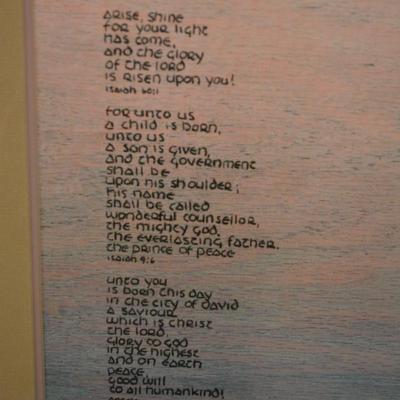 arise, shine
for your light
has come,
and the glory
of the lord
is risen upon you!
isaiah 60:1
for unto us
a child is born,
unto us
a son is given,
and the government
shall be
upon his shoulder;
his name
shall be called
wonderful counsellor,
the mighty god,
the everlasting father,
the prince of peace
isaiah 9:6
unto you
is born this day
in the city of david
a saviour
which is christ
the lord.
glory to god
in the highest
and on earth
peace,
good will
to all humankind!